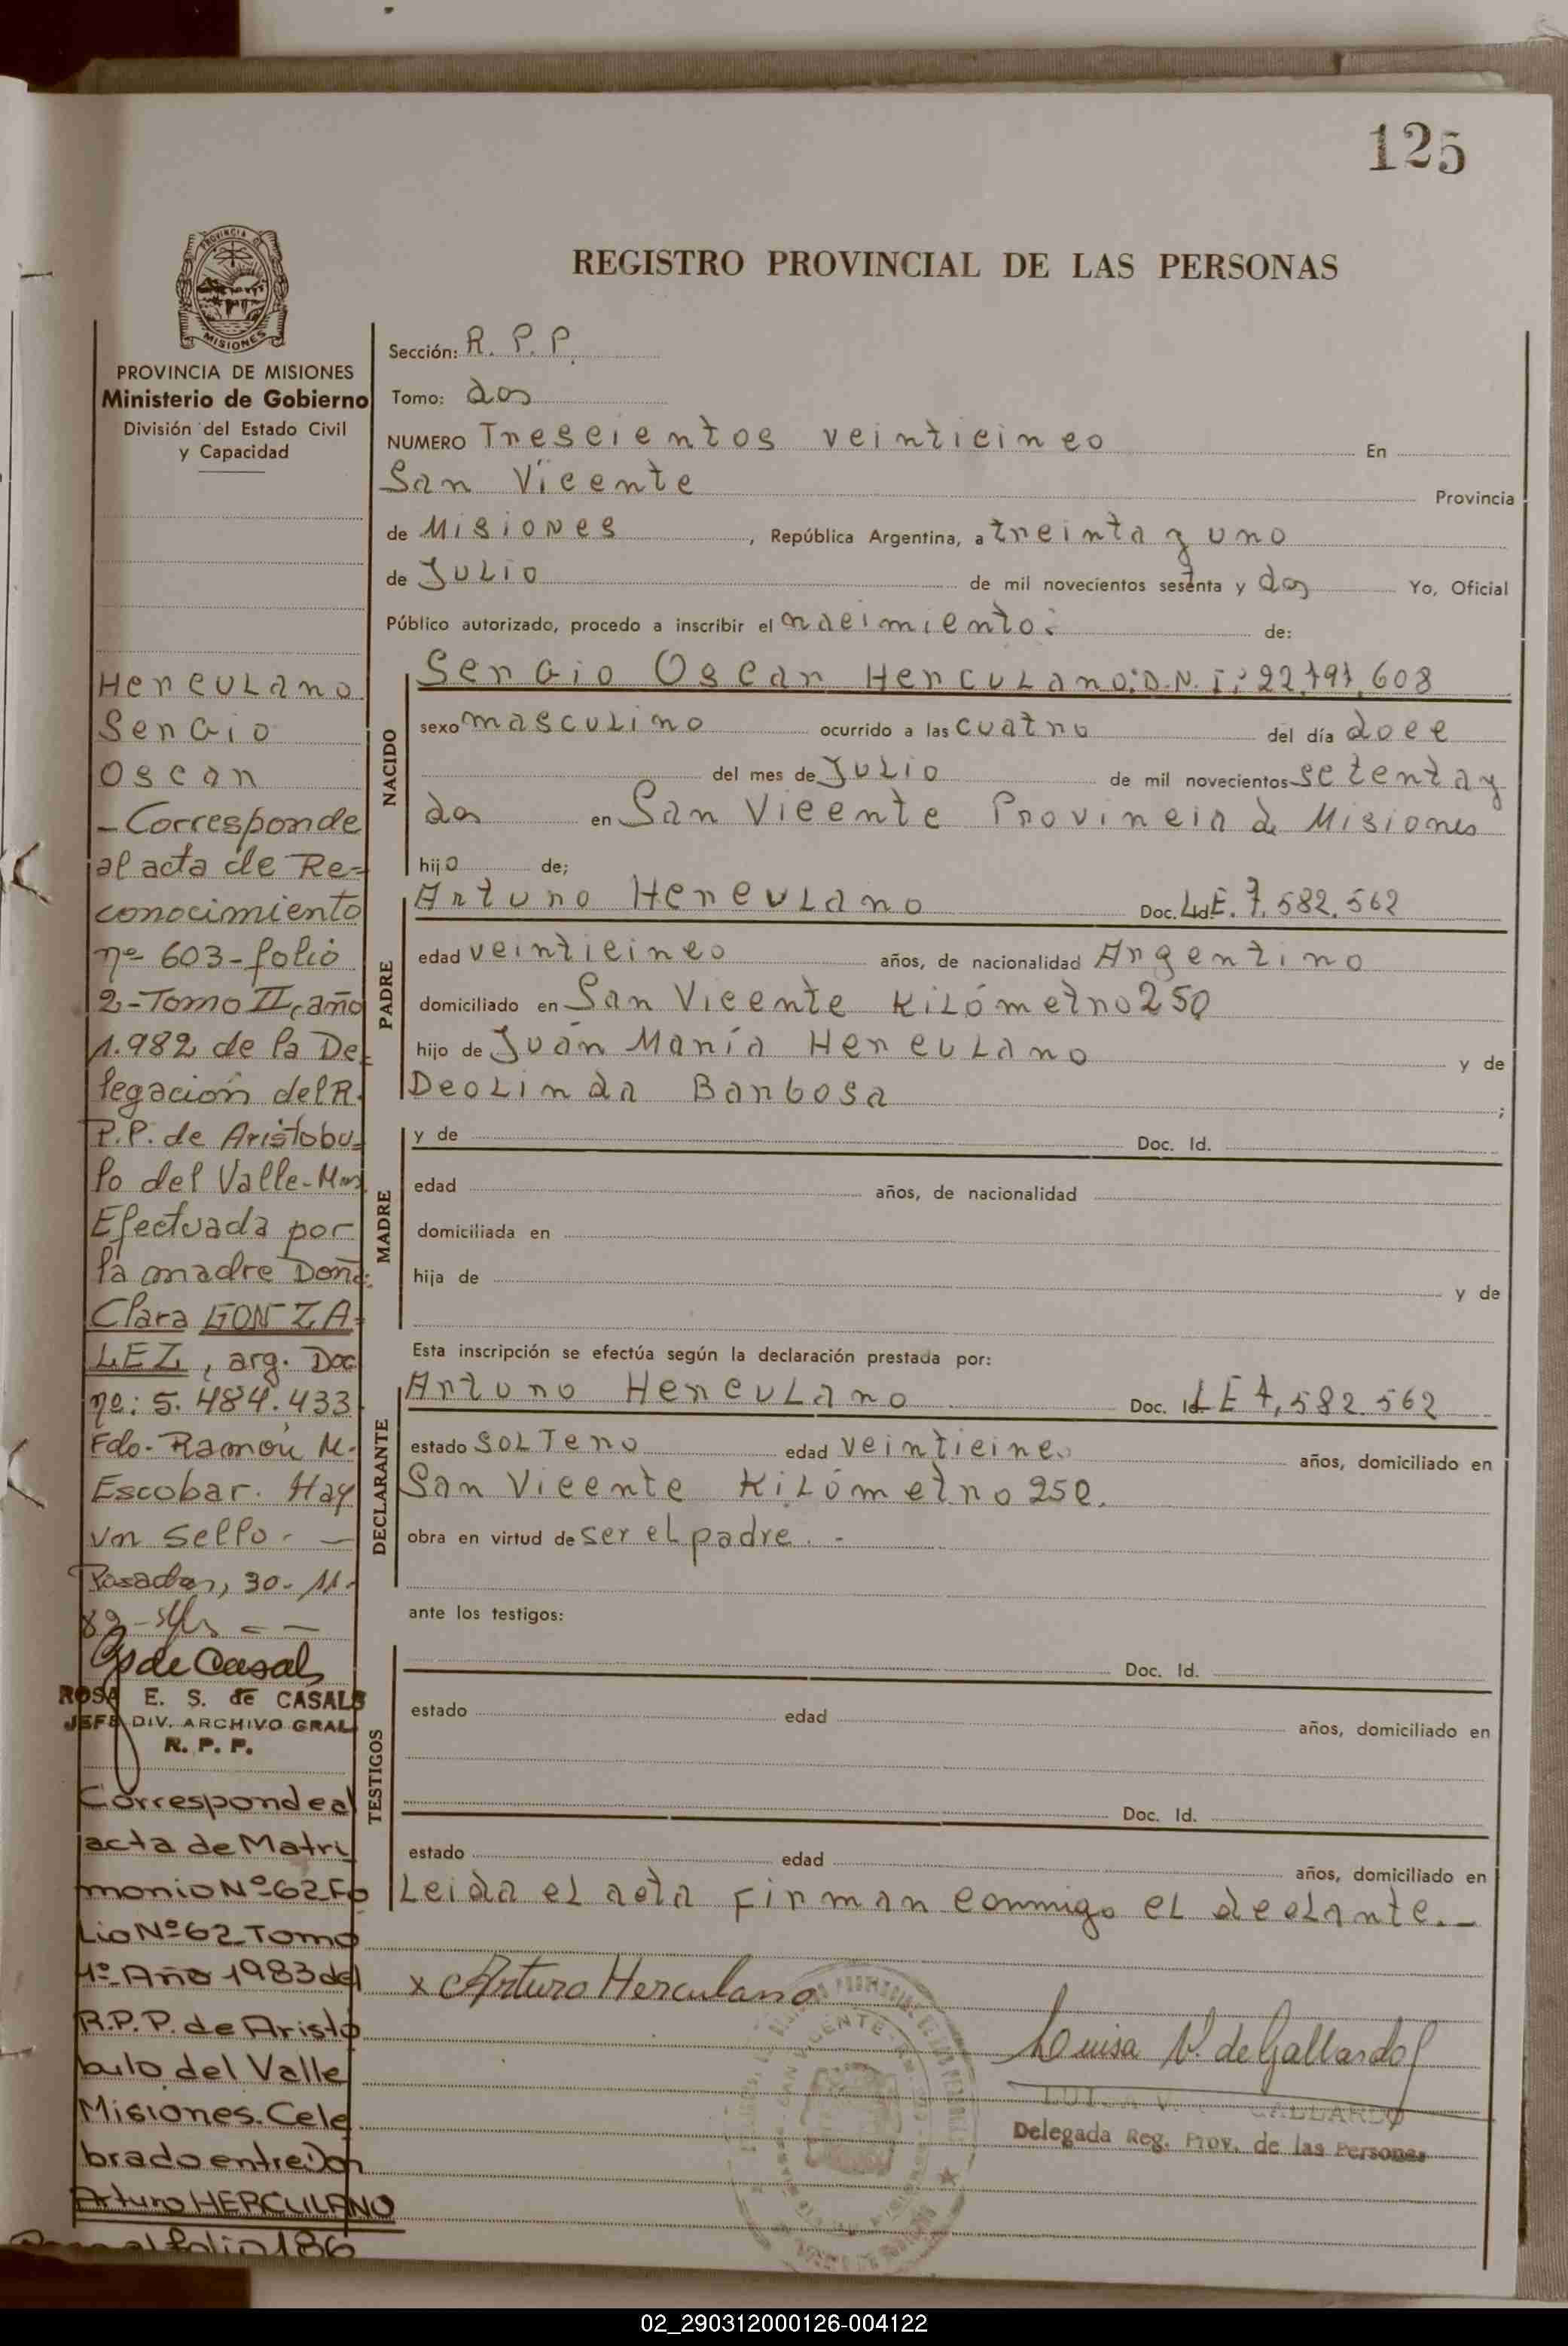 125
REGISTRO PROVINCIAL DE LAS PERSONAS
PROVINCIA DE
MISIONES
PROVINCIA DE MISIONES
Ministerio de Gobierno
División del Estado Civil
y Capacidad
Herculano
Sergio
Oscar
- Corresponde
al acta de Re=
conocimiento
nº 603 - folio
2 - Tomo II, año
1.982 de la De=
legación del R.
P.P. de Aristobu=
lo del Valle - Mnes
Efectuada por
la madre Doña:
Clara GONZA=
LEZ, arg. Doc
nº: 5.484.433
Fdo. Ramón M.
Escobar. Hay
un sello. -
Posadas, 30-11-
82 -
de Casals
ROSA E. S. de CASALS
JEFE DIV. ARCHIVO GRAL
R. P. P.
Corresponde al
acta de Matri
monio Nº 62 Fo
Lio Nº 62 Tomo
1º Año 1983 del
R.P.P. de Aristó
bulo del Valle
Misiones. Cele
brado entre: Don
Arturo HERCULANO
al folio 186
Sección: R. P. P.
Tomo: dos
NUMERO Trescientos veinticinco En
San Vicente Provincia
de Misiones , República Argentina, a treinta y uno
de Julio de mil novecientos setenta y dos Yo, Oficial
Público autorizado, procedo a inscribir el nacimiento: de:
NACIDO
Sergio Oscar Herculano: D.N.I: 22.791.608
sexo masculino ocurrido a las cuatro del día doce
del mes de Julio de mil novecientos setenta y
dos en San Vicente Provincia de Misiones
hijo de;
PADRE
Arturo Herculano Doc. Id. L.E. 7.582.562
edad veinticinco años, de nacionalidad Argentino
domiciliado en San Vicente Kilómetro 250
hijo de Juán María Herculano y de
Deolinda Barbosa ;
MADRE
y de Doc. Id.
edad años, de nacionalidad
domiciliada en
hija de y de
Esta inscripción se efectúa según la declaración prestada por:
DECLARANTE
Arturo Herculano Doc. Id. L E 7,582.562
estado solTero edad veinticinco años, domiciliado en
San Vicente Kilómetro 250.
obra en virtud de ser el padre. -
ante los testigos:
TESTIGOS
Doc. Id.
estado edad años, domiciliado en
Doc. Id.
estado edad años, domiciliado en
Leida el acta Firman conmigo el declante. -
x Arturo Herculano
Luisa V. de Gallardo
LUISA V. GALLARDO
Delegada Reg. Prov. de las Personas
02_290312000126-004122